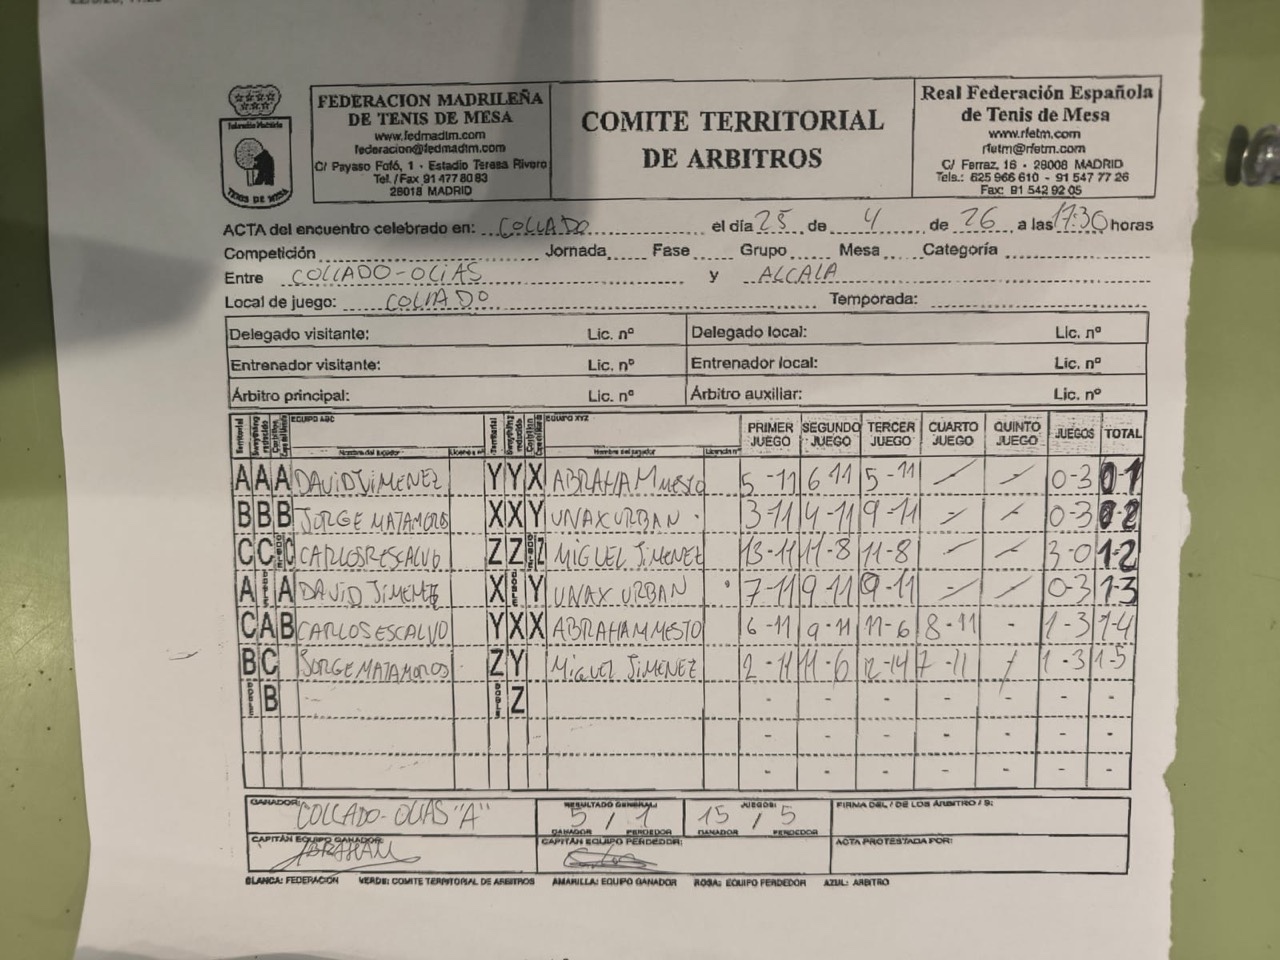 FEDERACION MADRILEÑA
DE TENIS DE MESA
www.fedmadtm.com
federacion@fedmadtm.com
C/ Payaso Fofó, 1 - Estadio Teresa Rivero
Tel./Fax 91 477 80 83
28018 MADRID
COMITE TERRITORIAL
DE ARBITROS
Real Federación Española
de Tenis de Mesa
www.rfetm.com
rfetm@rfetm.com
C/ Ferraz, 16 - 28008 MADRID
Tels.: 625 966 610 - 91 547 77 26
Fax: 91 542 92 05
Federación Madrileña
TENIS DE MESA
ACTA del encuentro celebrado en: COLLADO el día 25 de 4 de 26 a las 17:30 horas
Competición Jornada Fase Grupo Mesa Categoría
Entre COLLADO-OLIAS y ALCALA
Local de juego: COLLADO Temporada:
Delegado visitante: Lic. nº Delegado local: Lic. nº
Entrenador visitante: Lic. nº Entrenador local: Lic. nº
Árbitro principal: Lic. nº Árbitro auxiliar: Lic. nº
Territorial EQUIPO ABC Territorial EQUIPO XYZ PRIMER JUEGO SEGUNDO JUEGO TERCER JUEGO CUARTO JUEGO QUINTO JUEGO JUEGOS TOTAL
Nombre del jugador Licencia nº Nombre del jugador Licencia nº
A A A DAVID JIMENEZ Y Y X ABRAHAM MESTO 5-11 6-11 5-11 - - 0-3 0-1
B B B JORGE MATAMOROS X X Y UNAX URBAN 3-11 4-11 9-11 - - 0-3 0-2
C C DOBLE C CARLOS ESCALVO Z Z DOBLE Z MIGUEL JIMENEZ 13-11 11-8 11-8 - - 3-0 1-2
A DOBLE A DAVID JIMENEZ X DOBLE Y UNAX URBAN 7-11 9-11 9-11 - - 0-3 1-3
C A B CARLOS ESCALVO Y X X ABRAHAM MESTO 6-11 9-11 11-6 8-11 - 1-3 1-4
B C JORGE MATAMOROS Z Y MIGUEL JIMENEZ 2-11 11-6 12-14 7-11 - 1-3 1-5
DOBLE B DOBLE Z - - - - - - -
- - - - - - -
- - - - - - -
GANADOR: COLLADO-OLIAS "A" RESULTADO GENERAL: 5 / 1 JUEGOS: 15 / 5 FIRMA DEL / DE LOS ÁRBITRO / S:
GANADOR PERDEDOR GANADOR PERDEDOR
CAPITÁN EQUIPO GANADOR: ABRAHAM CAPITÁN EQUIPO PERDEDOR: ACTA PROTESTADA POR:
BLANCA: FEDERACIÓN VERDE: COMITE TERRITORIAL DE ARBITROS AMARILLA: EQUIPO GANADOR ROSA: EQUIPO PERDEDOR AZUL: ARBITRO